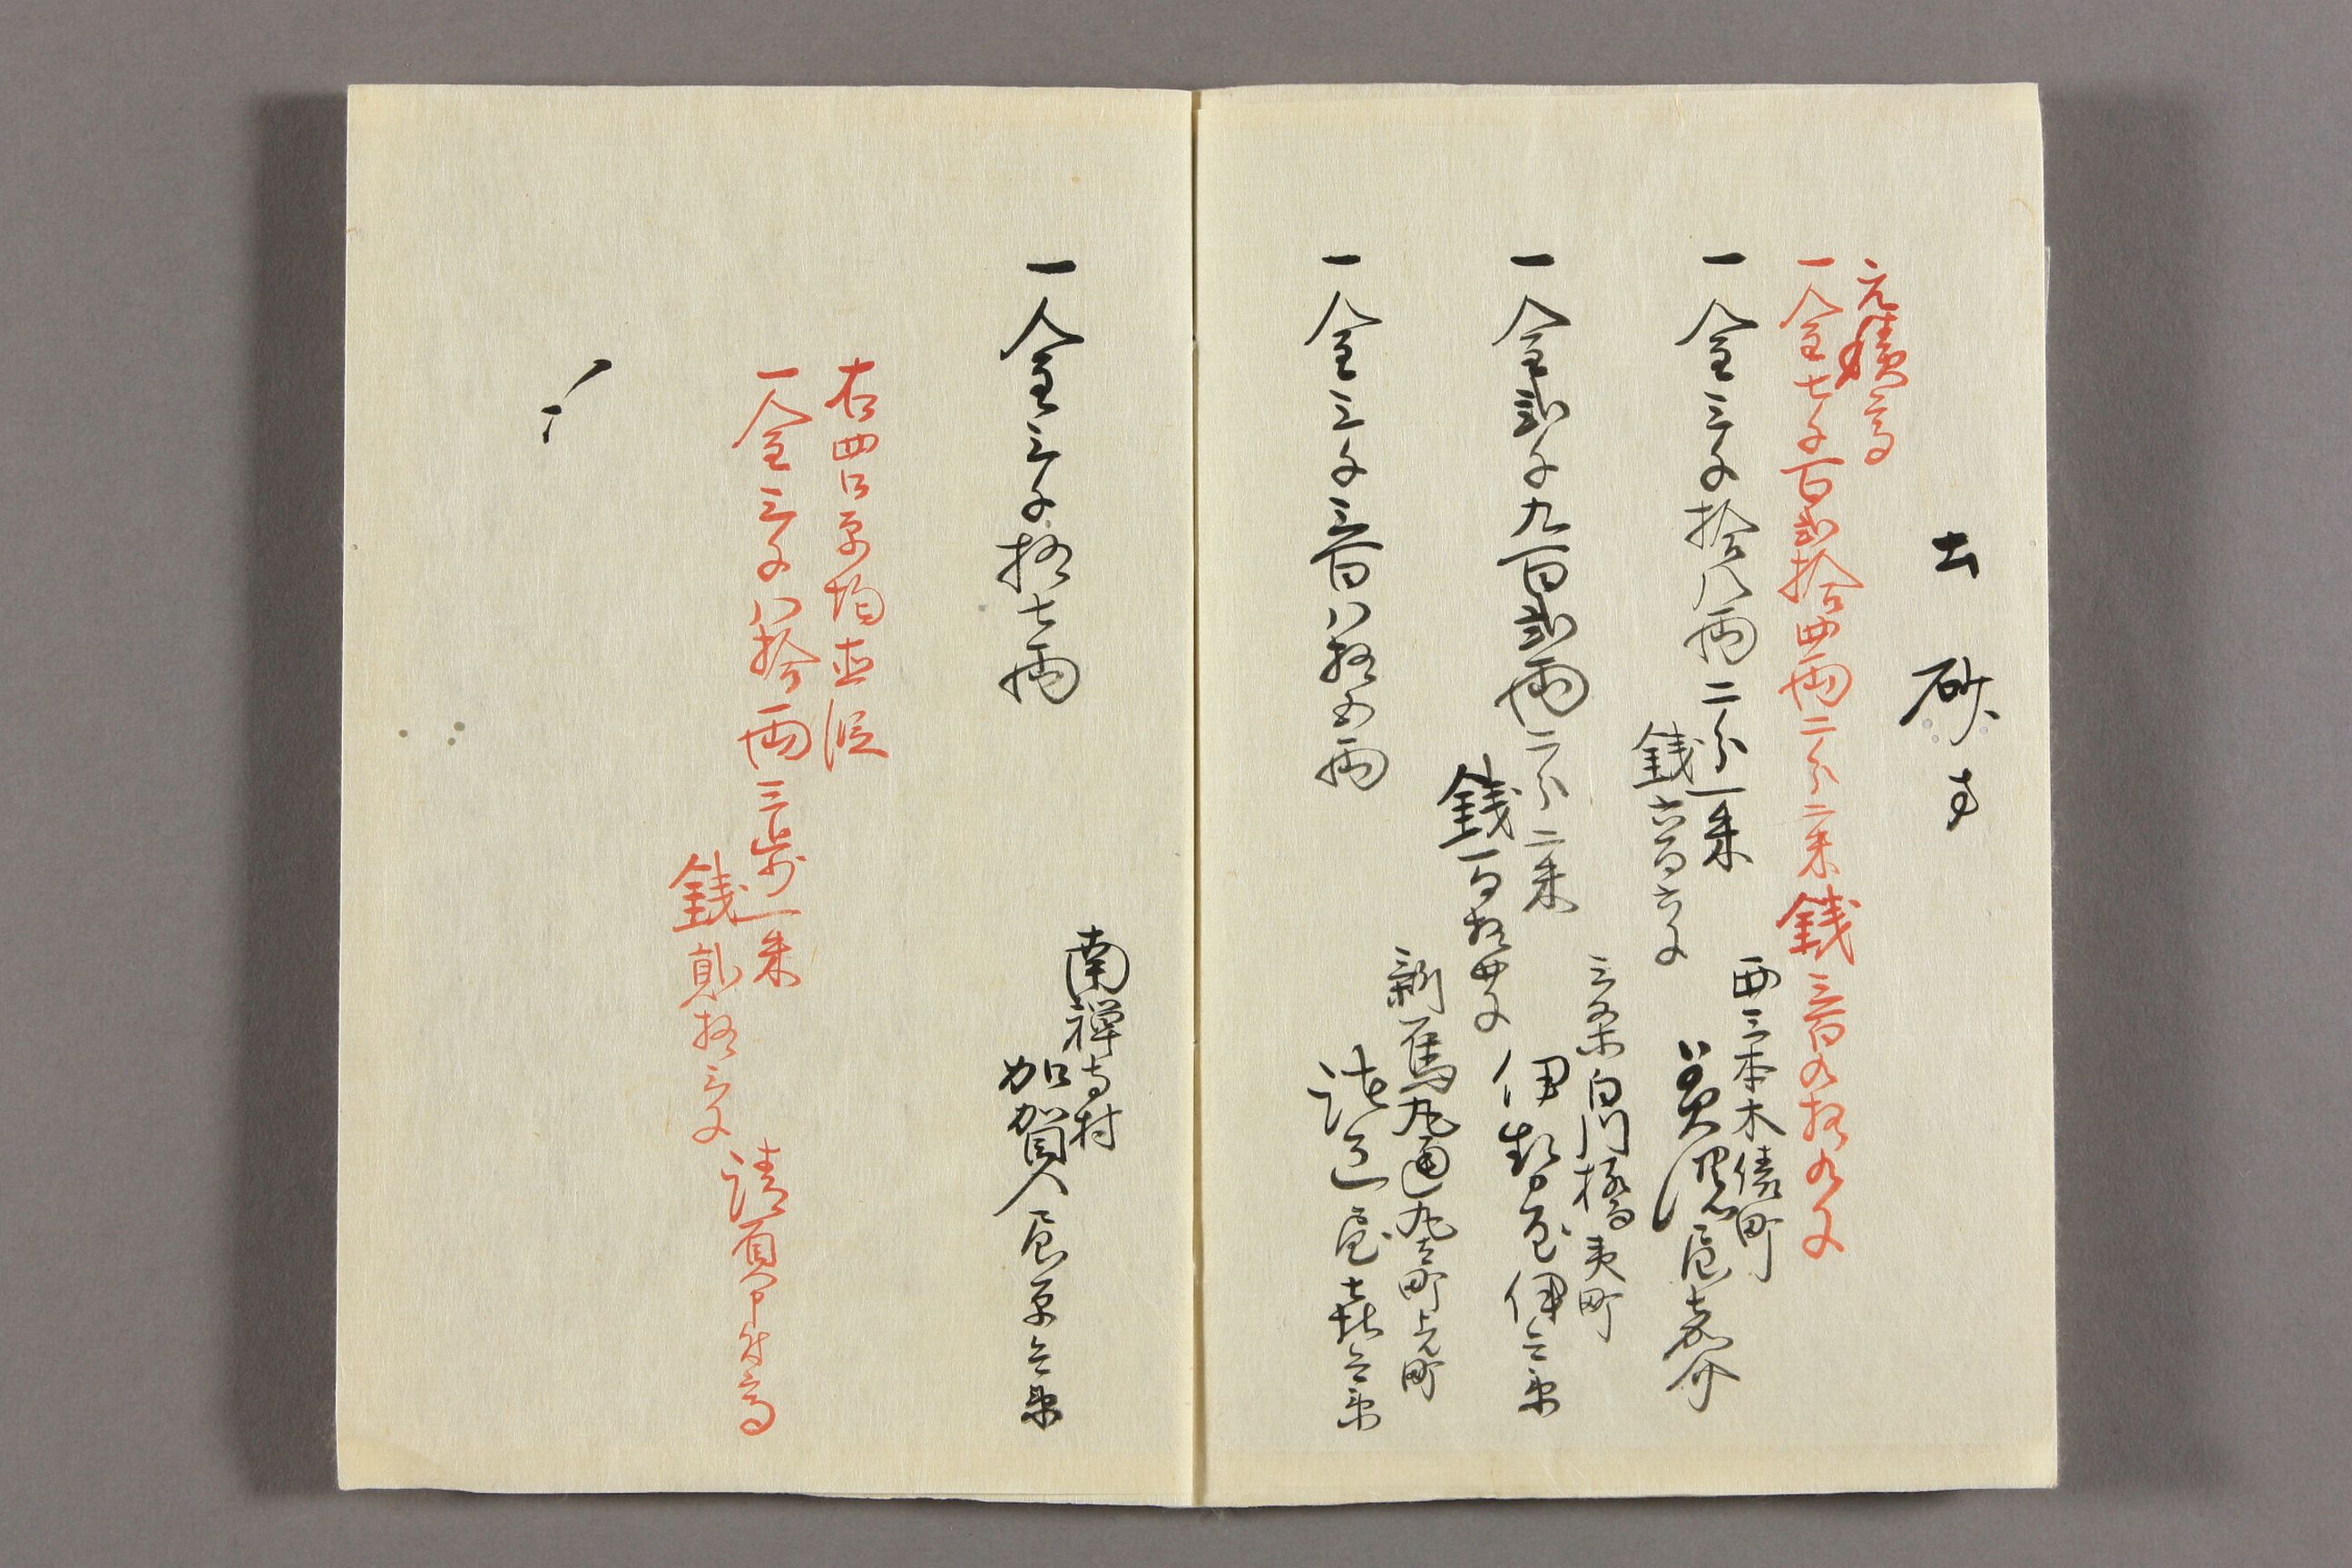 土砂方
元積高
一金七千百弐拾四両二分二朱銭三百九拾九文
一金三千拾八両二分一朱
銭六百六文
西三本木俵町
美濃屋嘉介
一金弐千九百弐両二分二朱
銭百拾四文
三条白川橋夷町
伊勢屋伊兵衛
一金三千三百八拾五両
新烏丸通丸太町上ル町
屋喜兵衛
一金三千拾七両
南禅寺村
加賀屋平兵衛
右四口平均直段
一金三千八拾両三歩一朱
銭弐拾三文
請負申付高